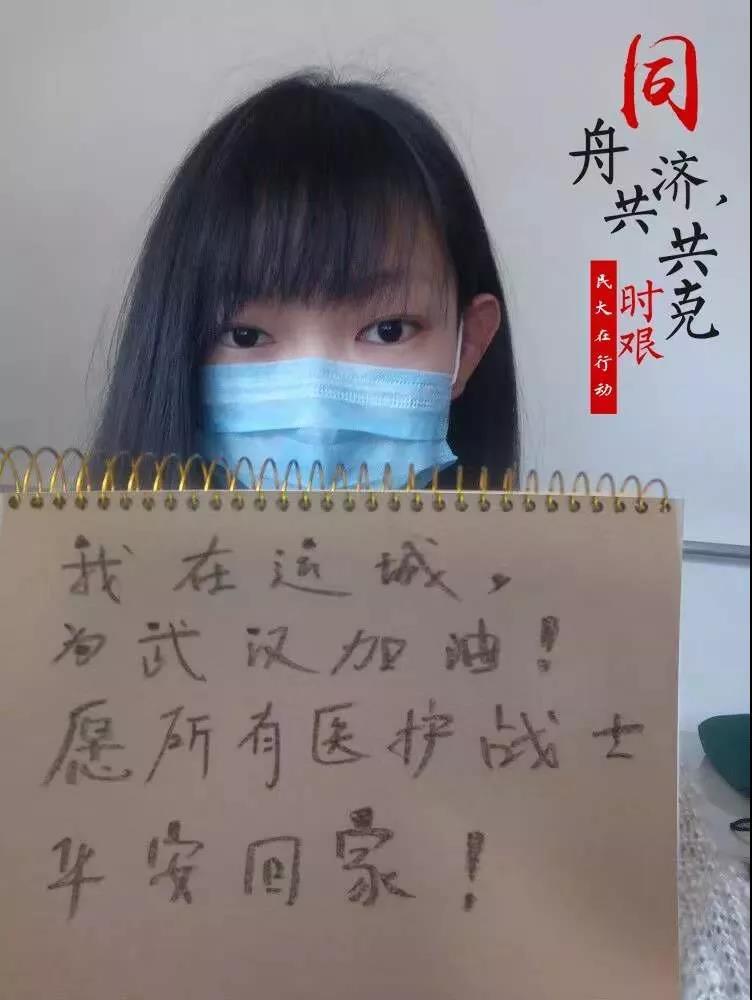 同
舟共济，
共克
时艰
民大在行动
我在运城，
为武汉加油！
愿所有医护战士
华安回家！